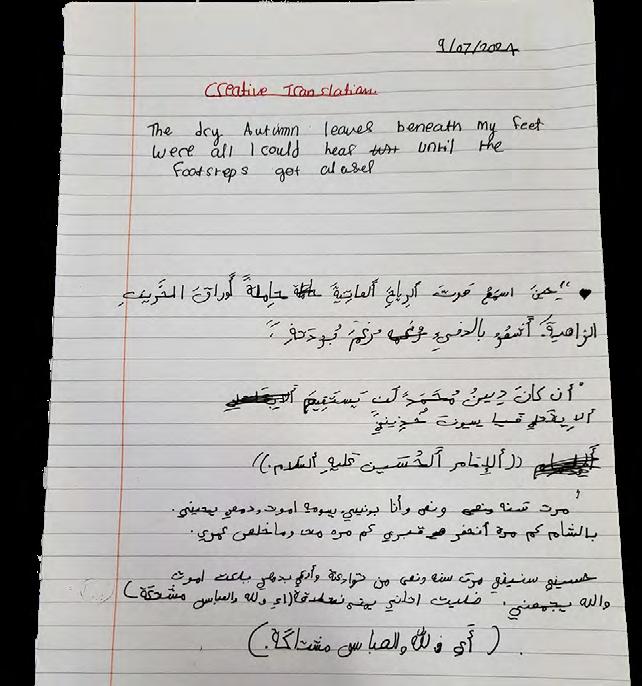 9/07/2024
Creative Translation
The dry Autumn leaves beneath my feet
were all I could hear until the
footsteps got closer
"حين اسمع صوت ألرياح ألعاتية حاملةً أوراقَ الخريف
الزاهية، أشعر بالدفىء رغمَ بُرودَتهِ
أن كانَ دِينُ مُحَمَدً لَن يَستَقيمَ
ألا بقتلي فيا سيوت خُذيني
((ألإمام ألحُسَين عَليهِ ألسَلام.))
مرت سنه ونص وأنا بونيني بيومه اموت ودمعي يحنيني.
بالشام كم مرة أنحفر قبري كم مره مت وماخلص عمري.
حسيني سنيني مرت سنه ونص من
اموت
والله يجمعني. ضليت احاني يمته نتلاقه (اي ولله والعباس مشتاگة)
(أي ولله والعباس مشتاگة.)